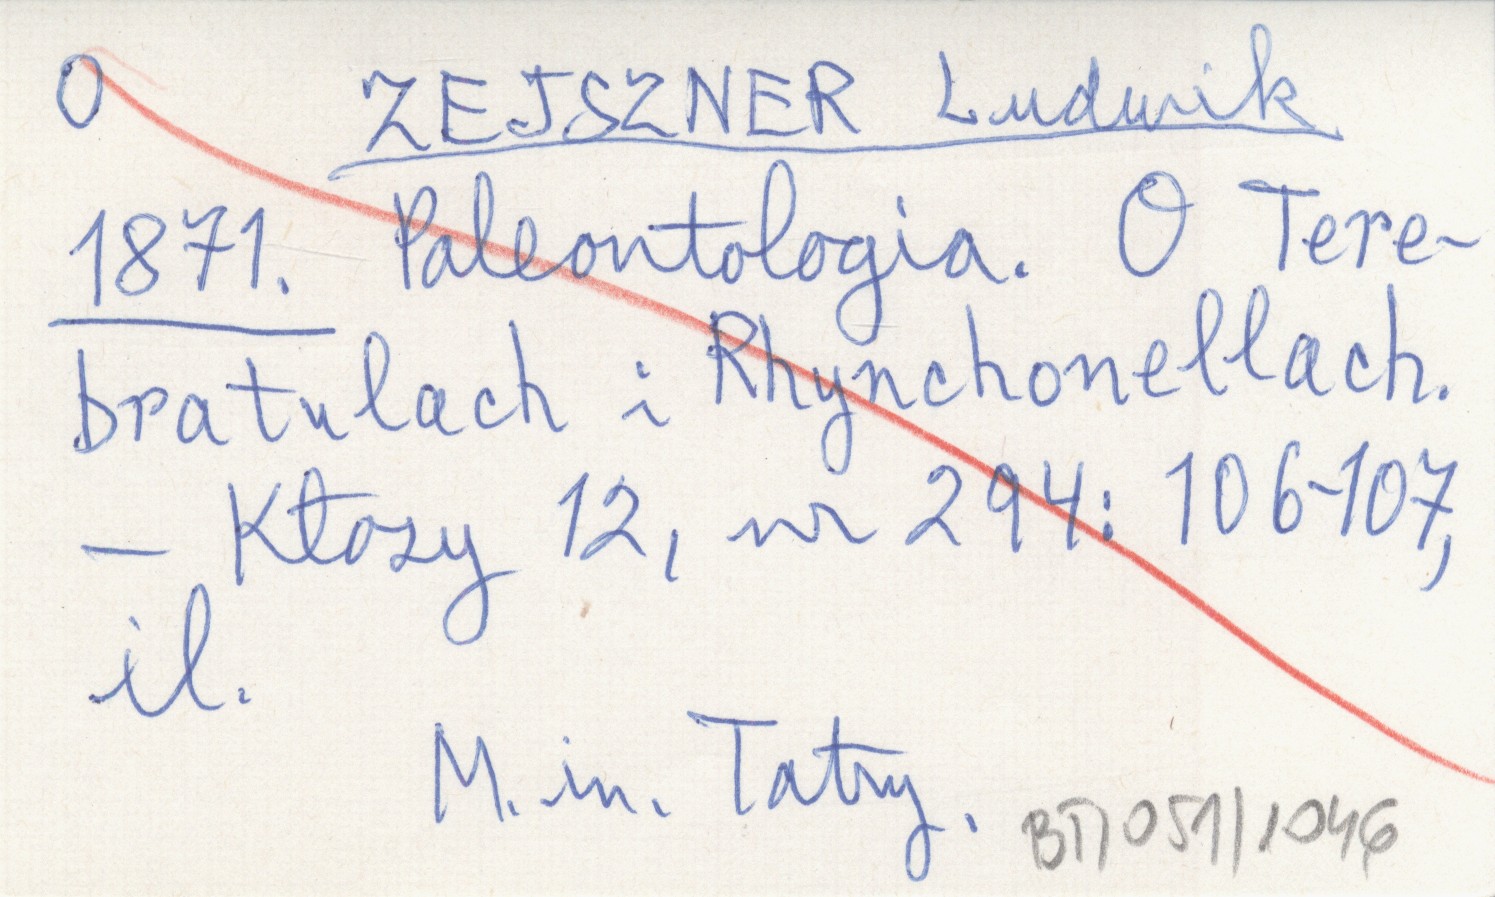 O ZEJSZNER Ludwik
1871. Paleontologia. O Tere-
bratulach i Rhynchonellach.
— Kłosy 12, nr 294: 106-107,
il.
M. in. Tatry.
BTP 051/1046